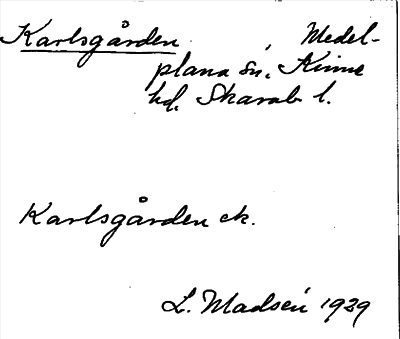 Karlsgården, Medel-
plana sn. Kinne
hd. Skarab l.
Karlsgården ek.
L. Madsén 1939